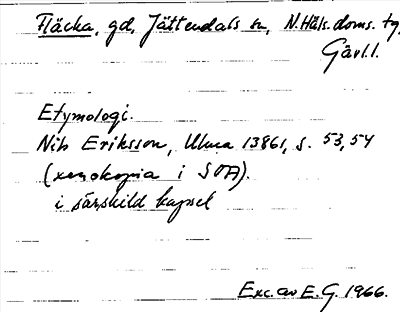 Fläcka, gd, Jättendals sn, N. Häls. doms. tg,
Gävl. l.
Etymologi.
Nils Eriksson, Uluca 13861, s. 53, 54
(xerokopia i SOA).
i särskild kapsel
Exc. av E. G. 1966.